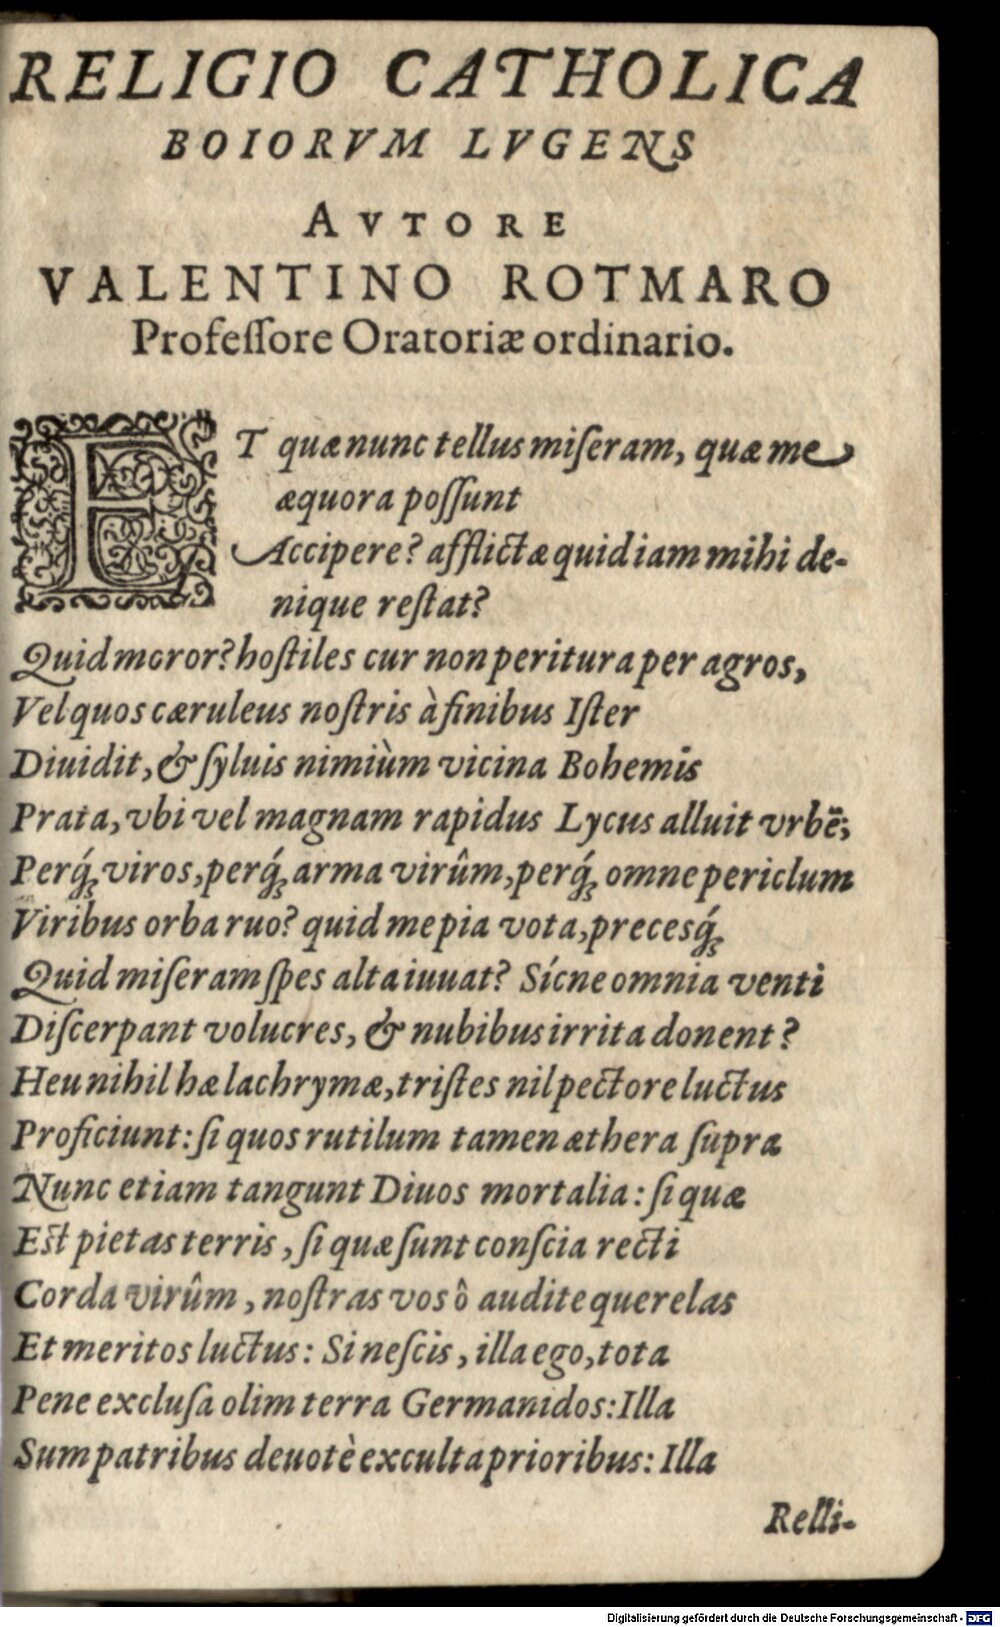 RELIGIO CATHOLICA
BOIORVM LVGENS
AVTORE
VALENTINO ROTMARO
Profeſſore Oratoriæ ordinario.
ET quæ nunc tellus miſeram, quæ me
æquora poſſunt
Accipere? afflictæ quid iam mihi de-
nique reſtat?
Quid moror? hoſtiles cur non peritura per agros,
Vel quos cæruleus noſtris à finibus Iſter
Diuidit, & ſyluis nimiùm vicina Bohemis
Prata, vbi vel magnam rapidus Lycus alluit vrbẽ;
Perq́ꝫ viros, perq́ꝫ arma virûm, perq́ꝫ omne periclum
Viribus orba ruo? quid me pia vota, precesq́ꝫ
Quid miſeram ſpes alta iuuat? Sícne omnia venti
Diſcerpant volucres, & nubibus irrita donent?
Heu nihil hæ lachrymæ, triſtes nil pectore luctus
Proficiunt: ſi quos rutilum tamen æthera ſupra
Nunc etiam tangunt Diuos mortalia: ſi quæ
Eſt pietas terris, ſi quæ ſunt conſcia recti
Corda virûm, noſtras vos ô audite querelas
Et meritos luctus: Si neſcis, illa ego, tota
Pene excluſa olim terra Germanidos: Illa
Sum patribus deuotè exculta prioribus: Illa
Relli-
Digitalisierung gefördert durch die Deutsche Forschungsgemeinschaft - DFG